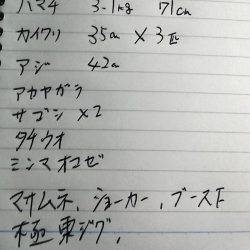 ハマチ 3.1kg 71cm
カイワリ 35cm × 3匹
アジ 42cm
アカヤガラ
サゴシ ×2
タチウオ
ミシマオコゼ
マサムネ、ジョーカー、ブースト
極東ジグ、